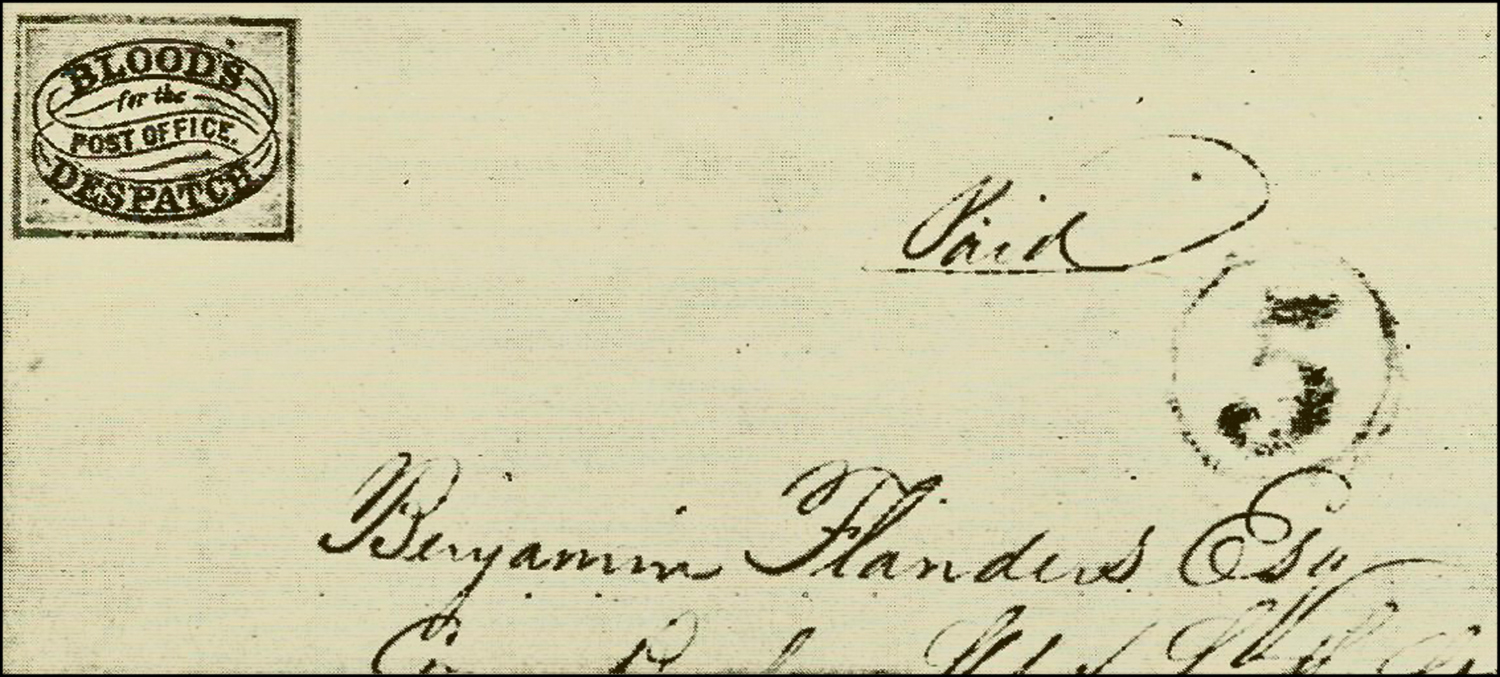 BLOOD'S
for the
POST OFFICE.
DESPATCH
Paid
5
Benjamin Flanders Esq